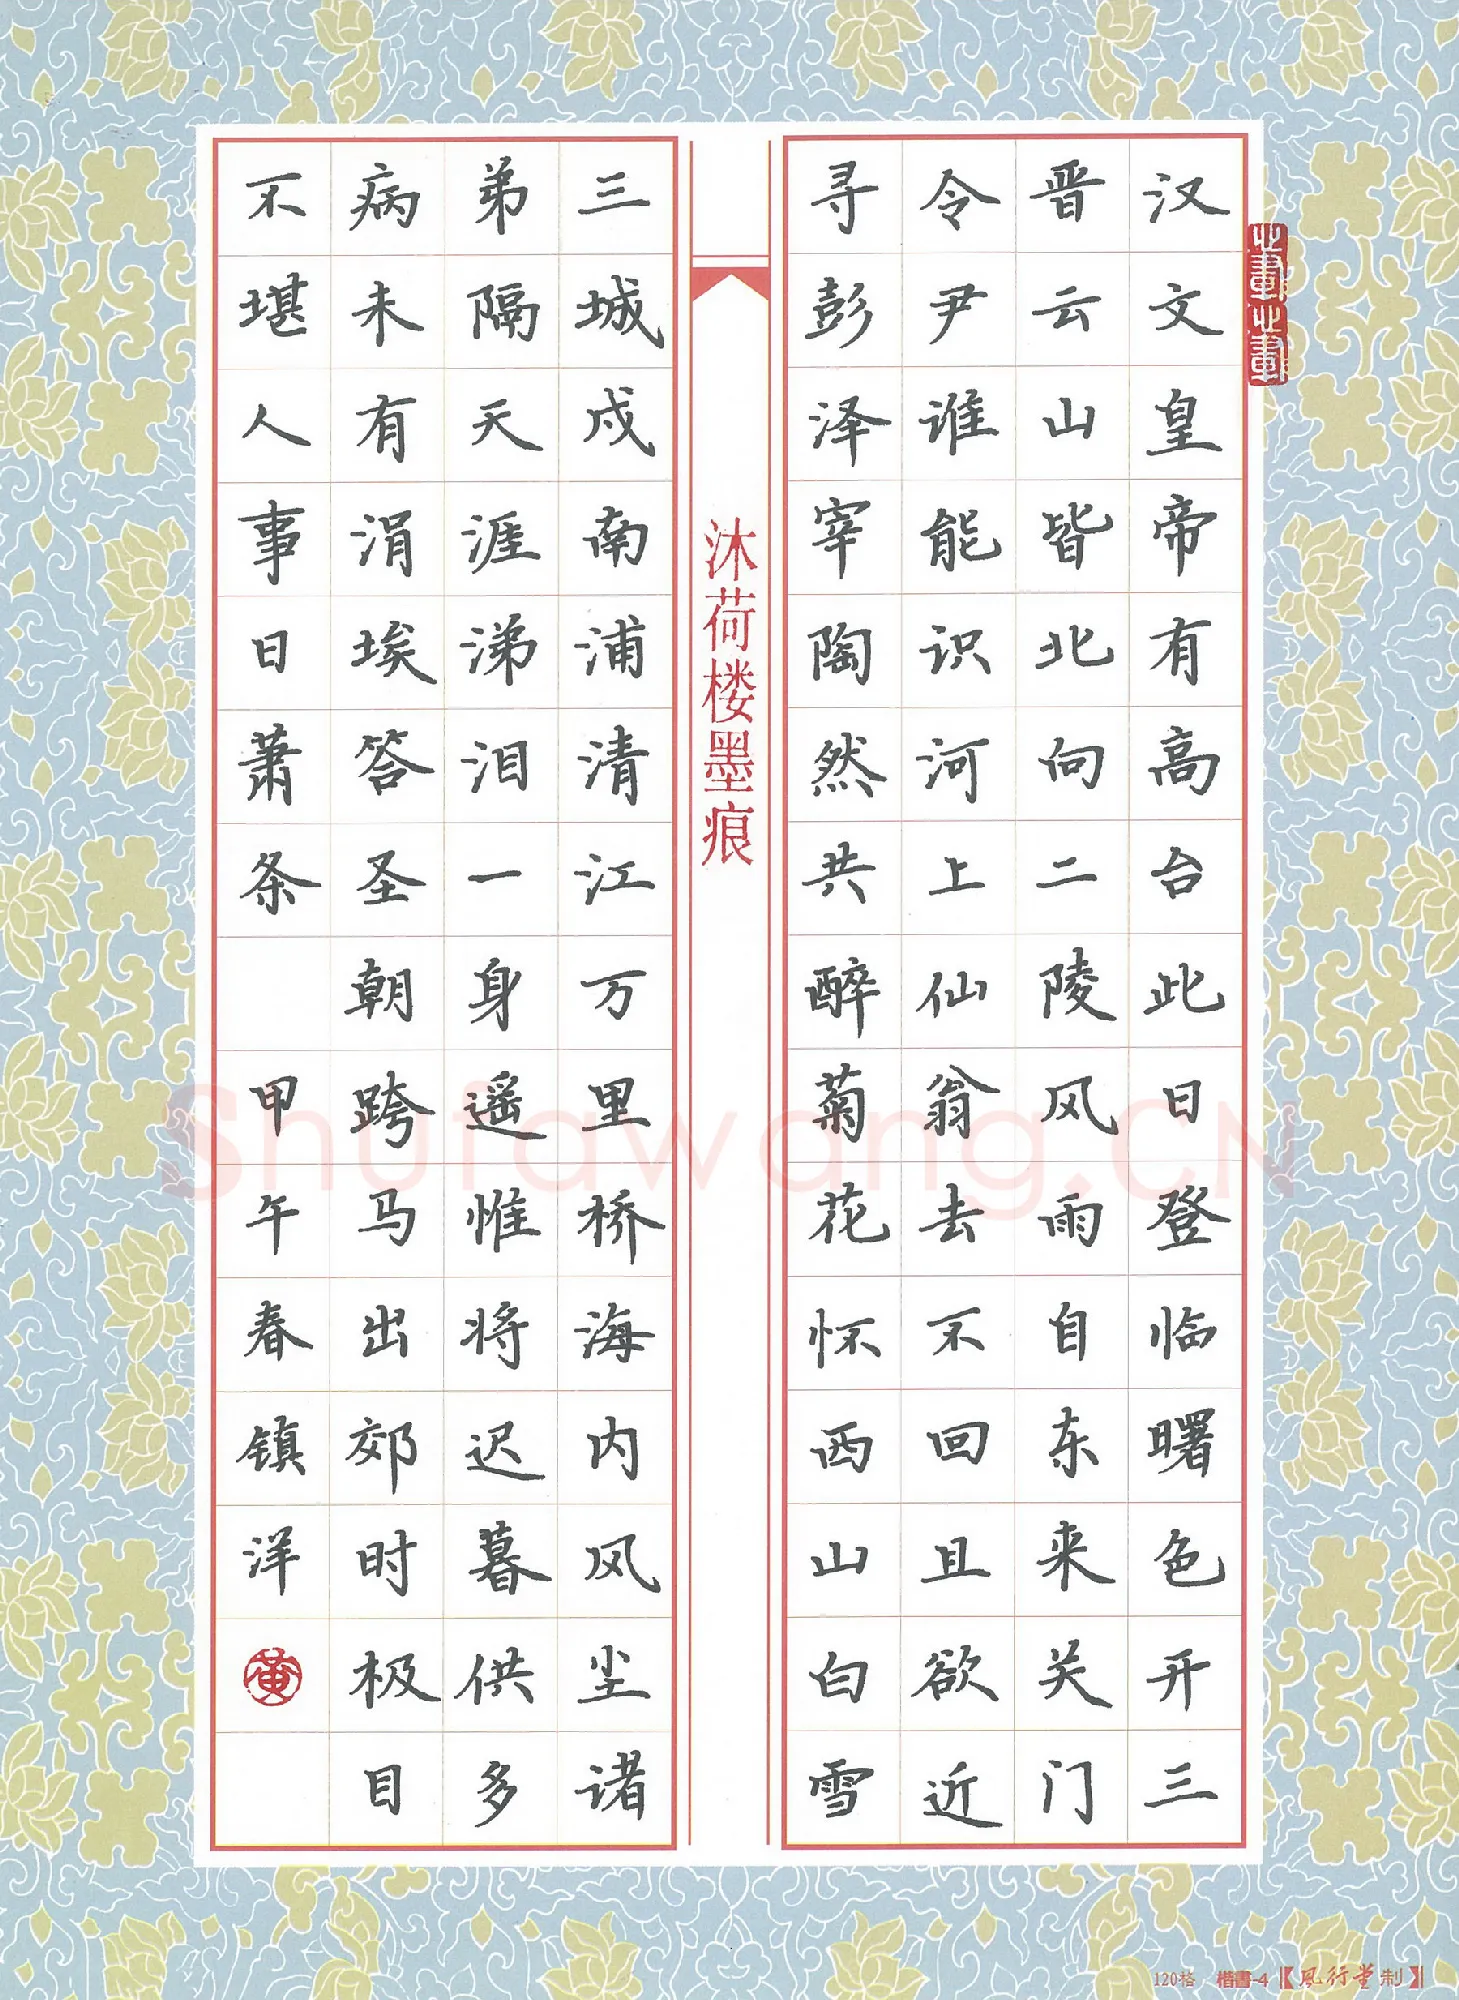 汉文皇帝有高台此日登临曙色开三
晋云山皆北向二陵风雨自东来关门
令尹谁能识河上仙翁去不回且欲近
寻彭泽宰陶然共醉菊花怀西山白雪
沐荷楼墨痕
三城戍南浦清江万里桥海内风尘诸
弟隔天涯涕泪一身遥惟将迟暮供多
病未有涓埃答圣朝跨马出郊时极目
不堪人事日萧条 甲午春镇洋
黄
Shufawang.CN
120格 楷書-4【風行堂制】